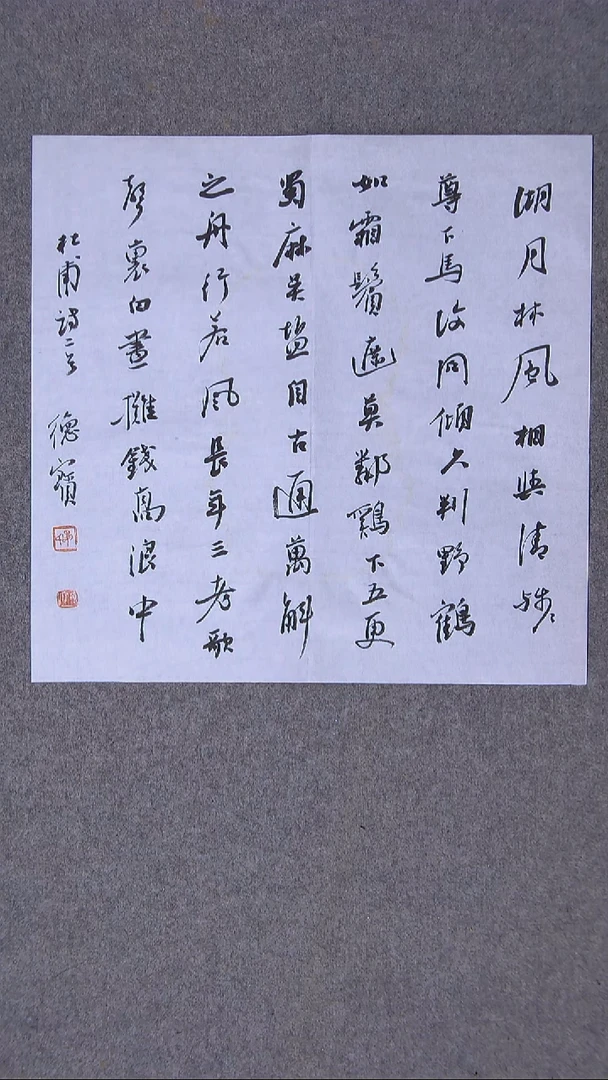 湖月林風相與清殘
尊下馬復同傾久判野鶴
如霜鬢遮莫鄰鷄下五更
蜀麻吳鹽自古通萬斛
之舟行若風長年三老歌
聲裏白晝攤錢高浪中
杜甫詩二首 德寶